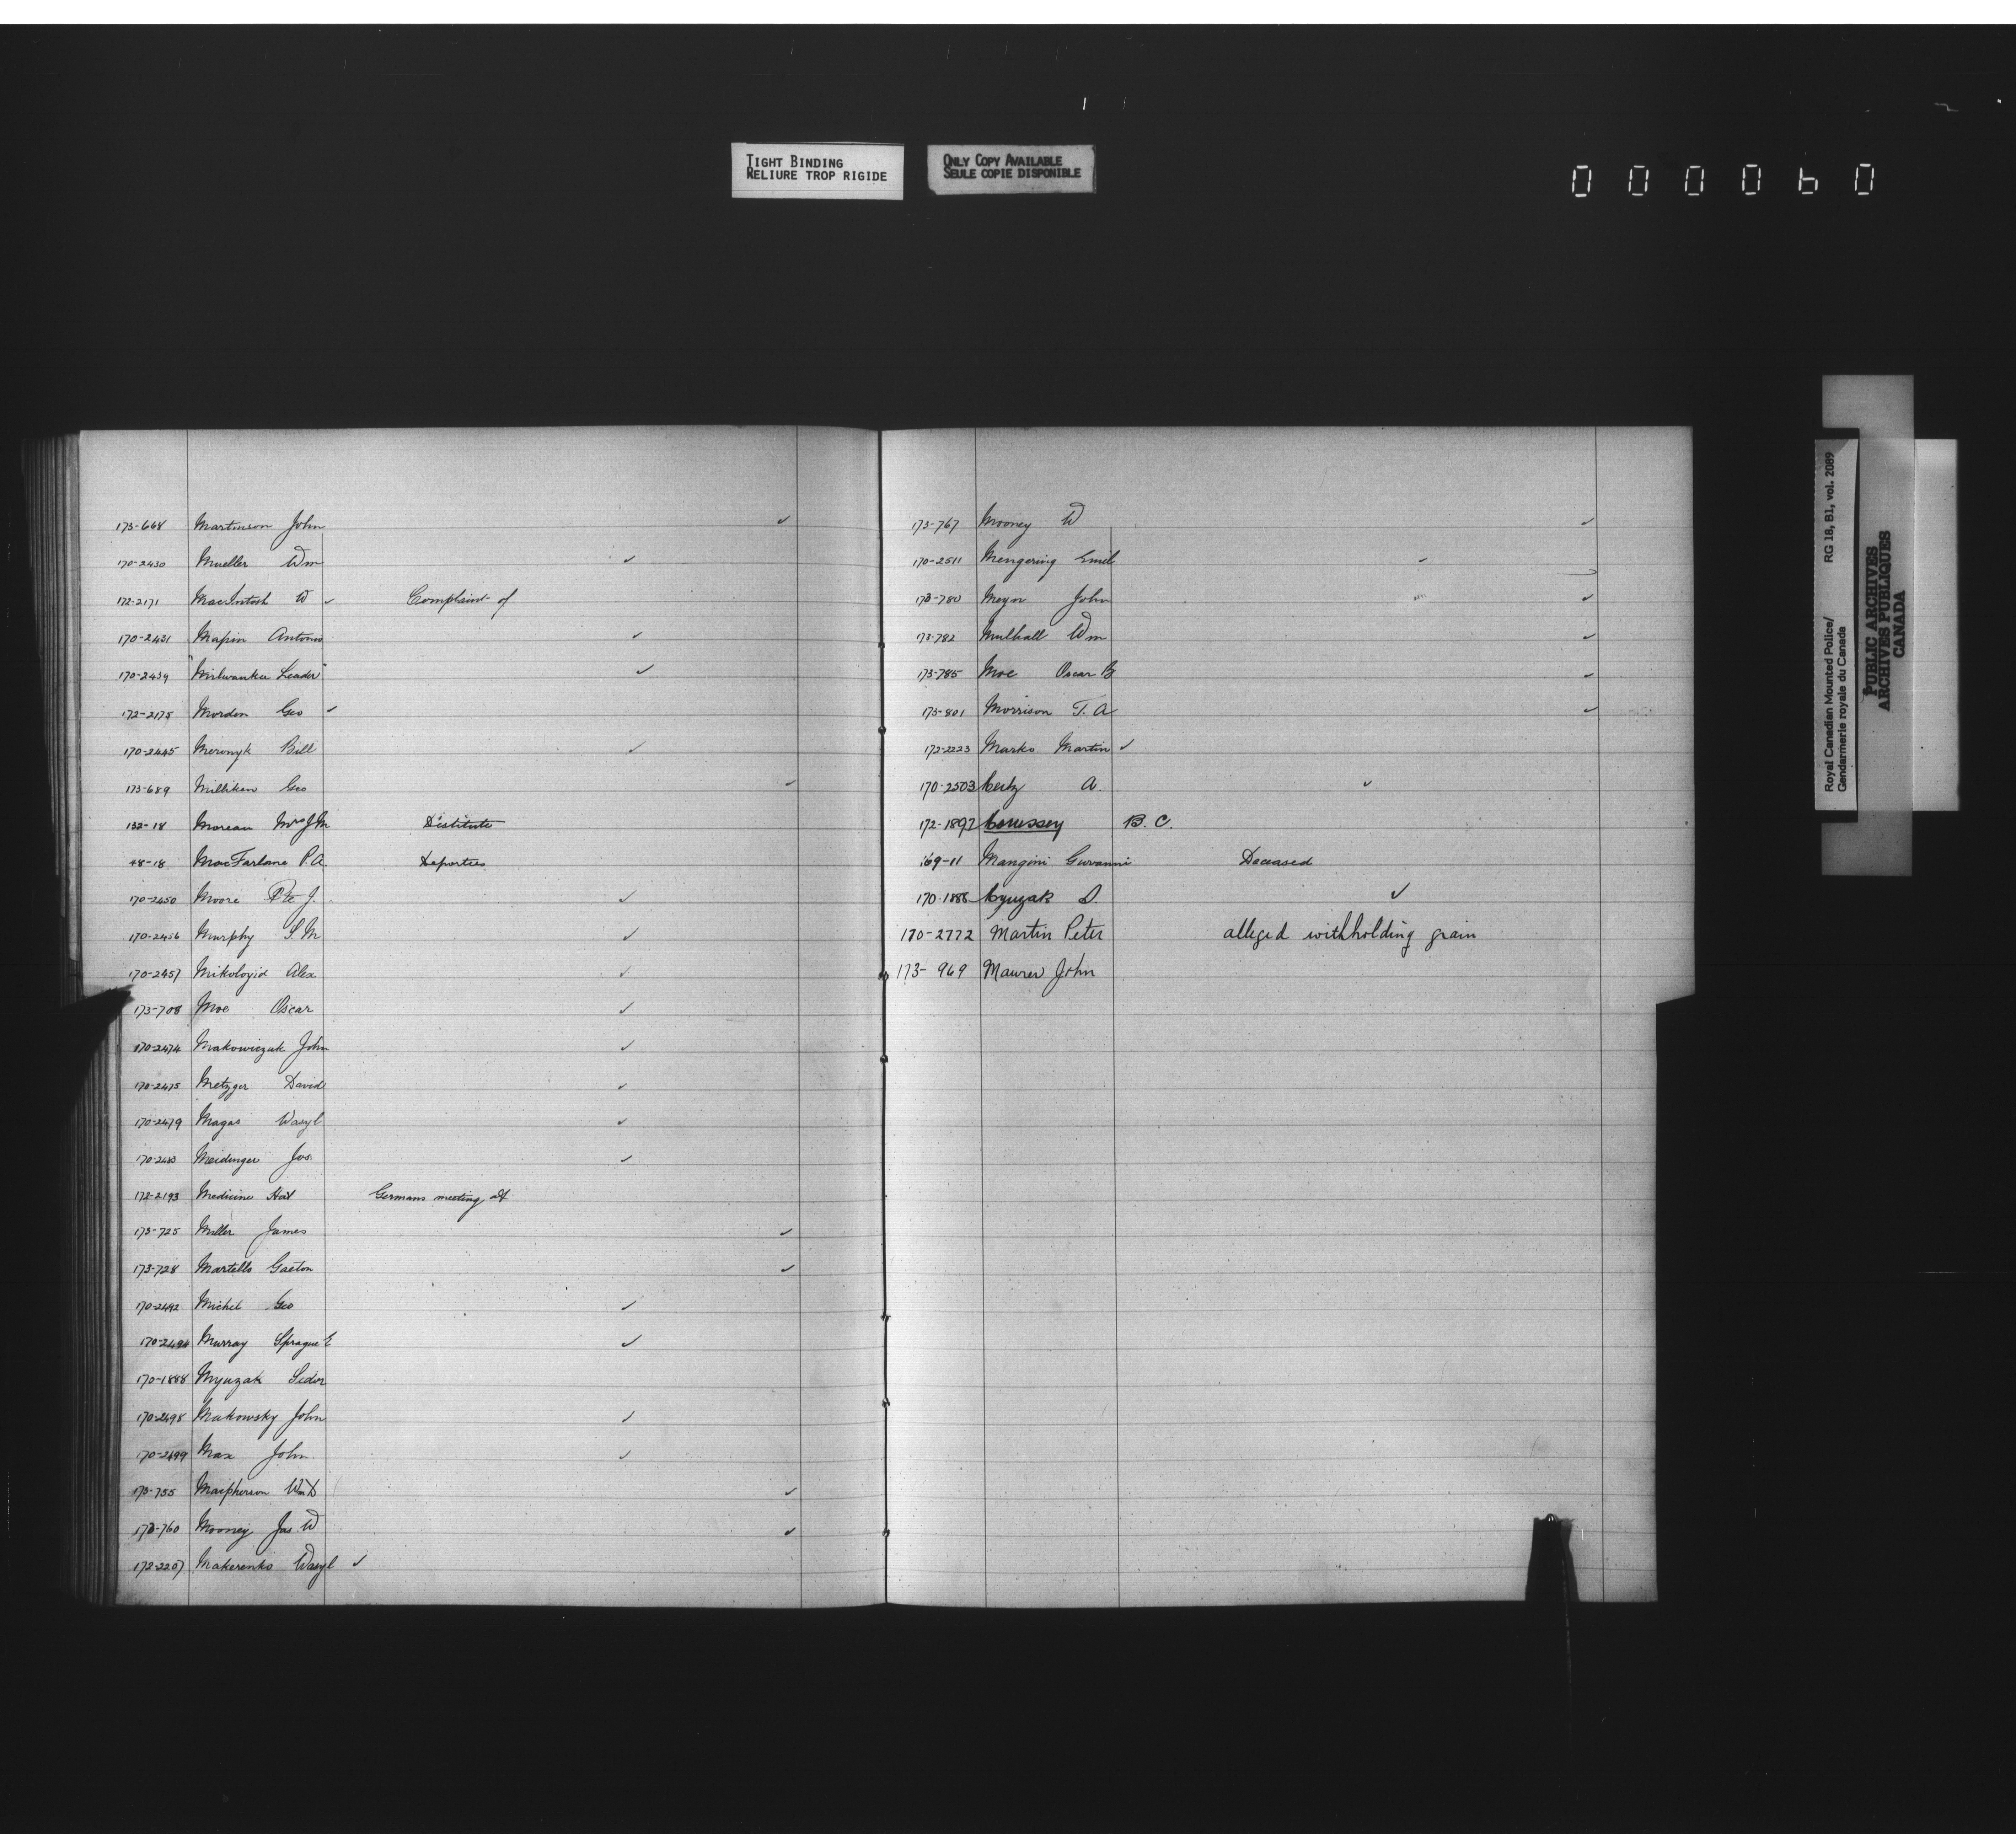 TIGHT BINDING
RELIURE TROP RIGIDE
ONLY COPY AVAILABLE
SEULE COPIE DISPONIBLE
000060
173-668 Martinson John ✓
170-2430 Mueller Wm ✓
172-2171 MacIntosh W ✓ Complaint of
170-2431 Mapin Antonio ✓
170-2439 "Milwaukee Leader" ✓
172-2175 Morden Geo ✓
170-2445 Meronyk Bill ✓
173-689 Milliken Geo ✓
132-18 Moreau Mrs J M Distitute
48-18 MacFarlane P. A. Deporties
170-2450 Moore Pte J. ✓
170-2456 Murphy S. M ✓
170-2457 Alex ✓
173-708 Moe Oscar ✓
170-2474 Makowiczuk John ✓
170-2475 Metzger David ✓
170-2479 Magas Wasyl ✓
170-2483 Meidinger Jos. ✓
172-2193 Medicine Hat Germans meeting at
173-725 Miller James ✓
173-728 Martello Gaeton ✓
170-2492 Michel Geo ✓
170-2494 Murray Sprague E ✓
170-1888 Myuzak Sidor
170-2498 Makowsky John ✓
170-2499 Max John ✓
173-755 Macpherson Wm D ✓
173-760 Mooney Jas. W ✓
172-2207 Makerenko Wasyl ✓
173-767 Mooney W ✓
170-2511 Mengering Emil ✓
173-780 Meyn John ✓
173-782 Mulhall Wm ✓
173-785 Moe Oscar B ✓
173-801 Morrison T. A ✓
172-2223 Marko Martin ✓
170-2503 A. ✓
172-1897 B. C.
169-11 Mangini Giovanni Deceased
170-1888 D. ✓
170-2772 Martin Peter alleged withholding grain
173-969 Maurer John
Royal Canadian Mounted Police/
Gendarmerie royale du Canada
RG 18, B1, vol. 2089
PUBLIC ARCHIVES
ARCHIVES PUBLIQUES
CANADA